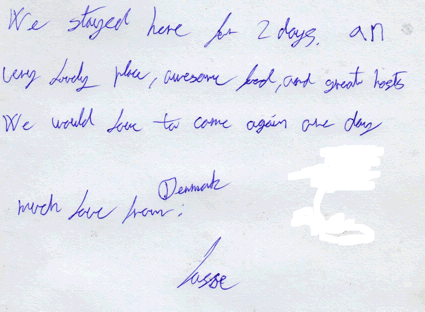 We stayed here for 2 days. an
very lovely place, awesome food, and great hosts
We would love to come again one day
much love from: Denmark
Lasse